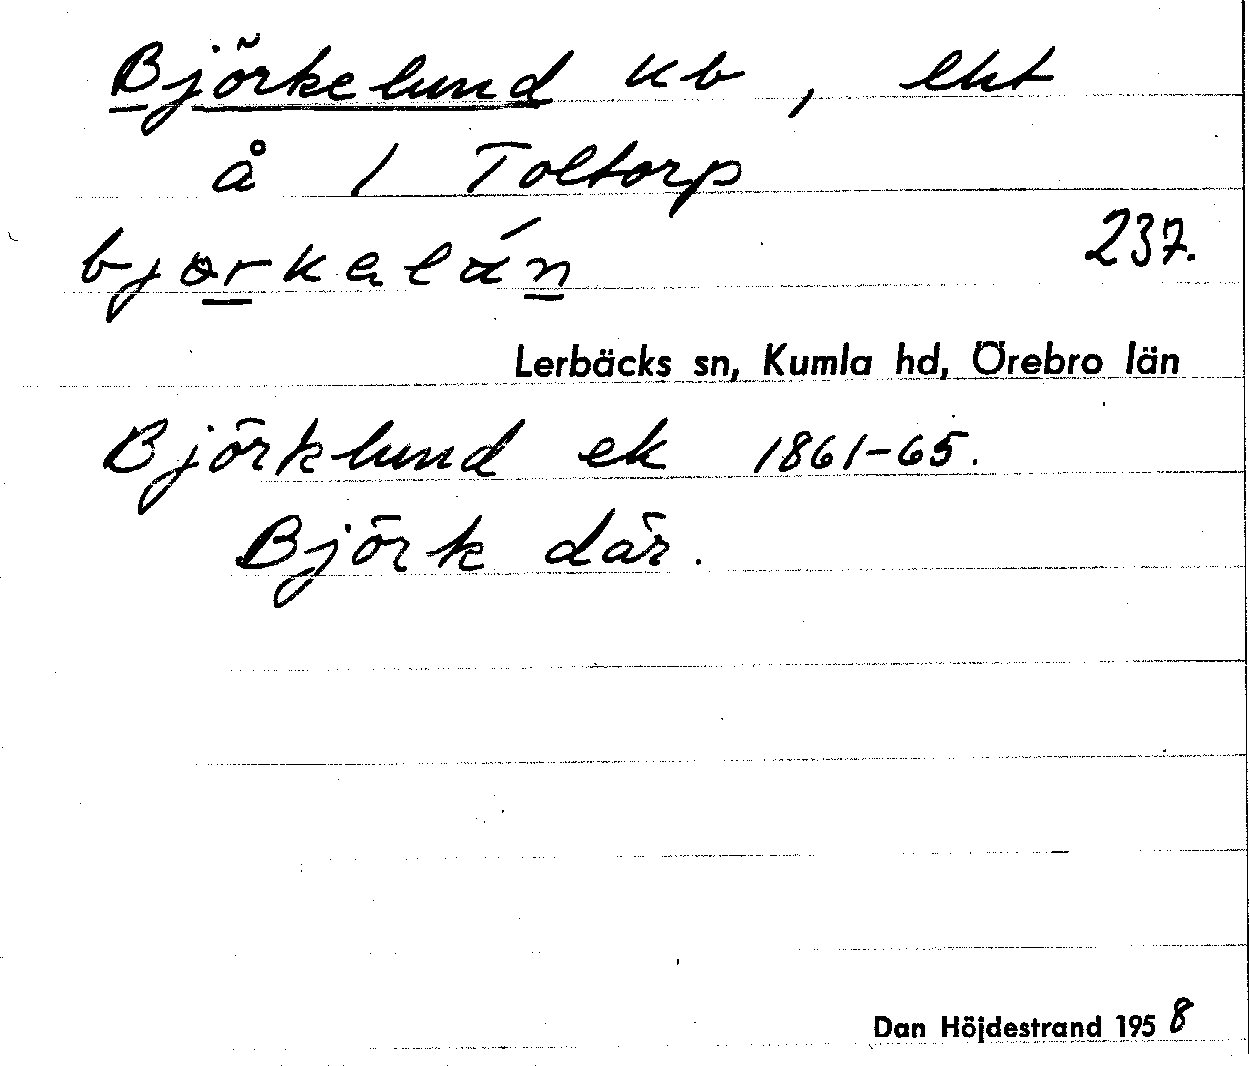 Björkelund ub, ekt
å 1 Toltorp
bjorkalán
237.
Lerbäcks sn, Kumla hd, Örebro län
Björklund ek 1861-65.
Björk där.
Dan Höjdestrand 1958